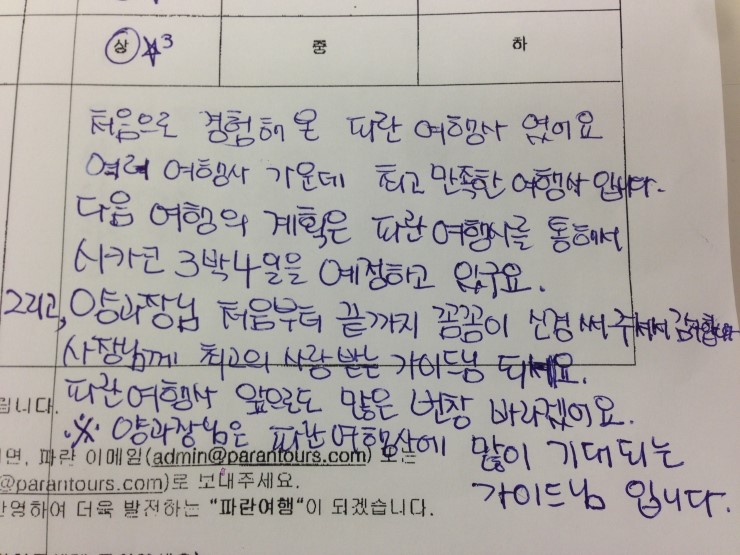 상 3 중 하
처음으로 경험해 본 파란 여행사 였어요
여러 여행사 가운데 최고 만족한 여행사 입니다.
다음 여행의 계획은 파란여행사를 통해서
시카코 3박4일을 예정하고 있구요.
그리고, 양과장님 처음부터 끝까지 꼼꼼이 신경써주셔서 감사합니다
사장님께 최고의 사랑받는 가이드님 되세요.
파란여행사 앞으로도 많은 번창 바라겠어요.
립니다.
※ 양과장님은 파란여행사에 많이 기대되는
면, 파란 이메일(admin@parantours.com) 또는
가이드님 입니다.
@parantours.com)로 보내주세요.
반영하여 더욱 발전하는 "파란여행"이 되겠습니다.